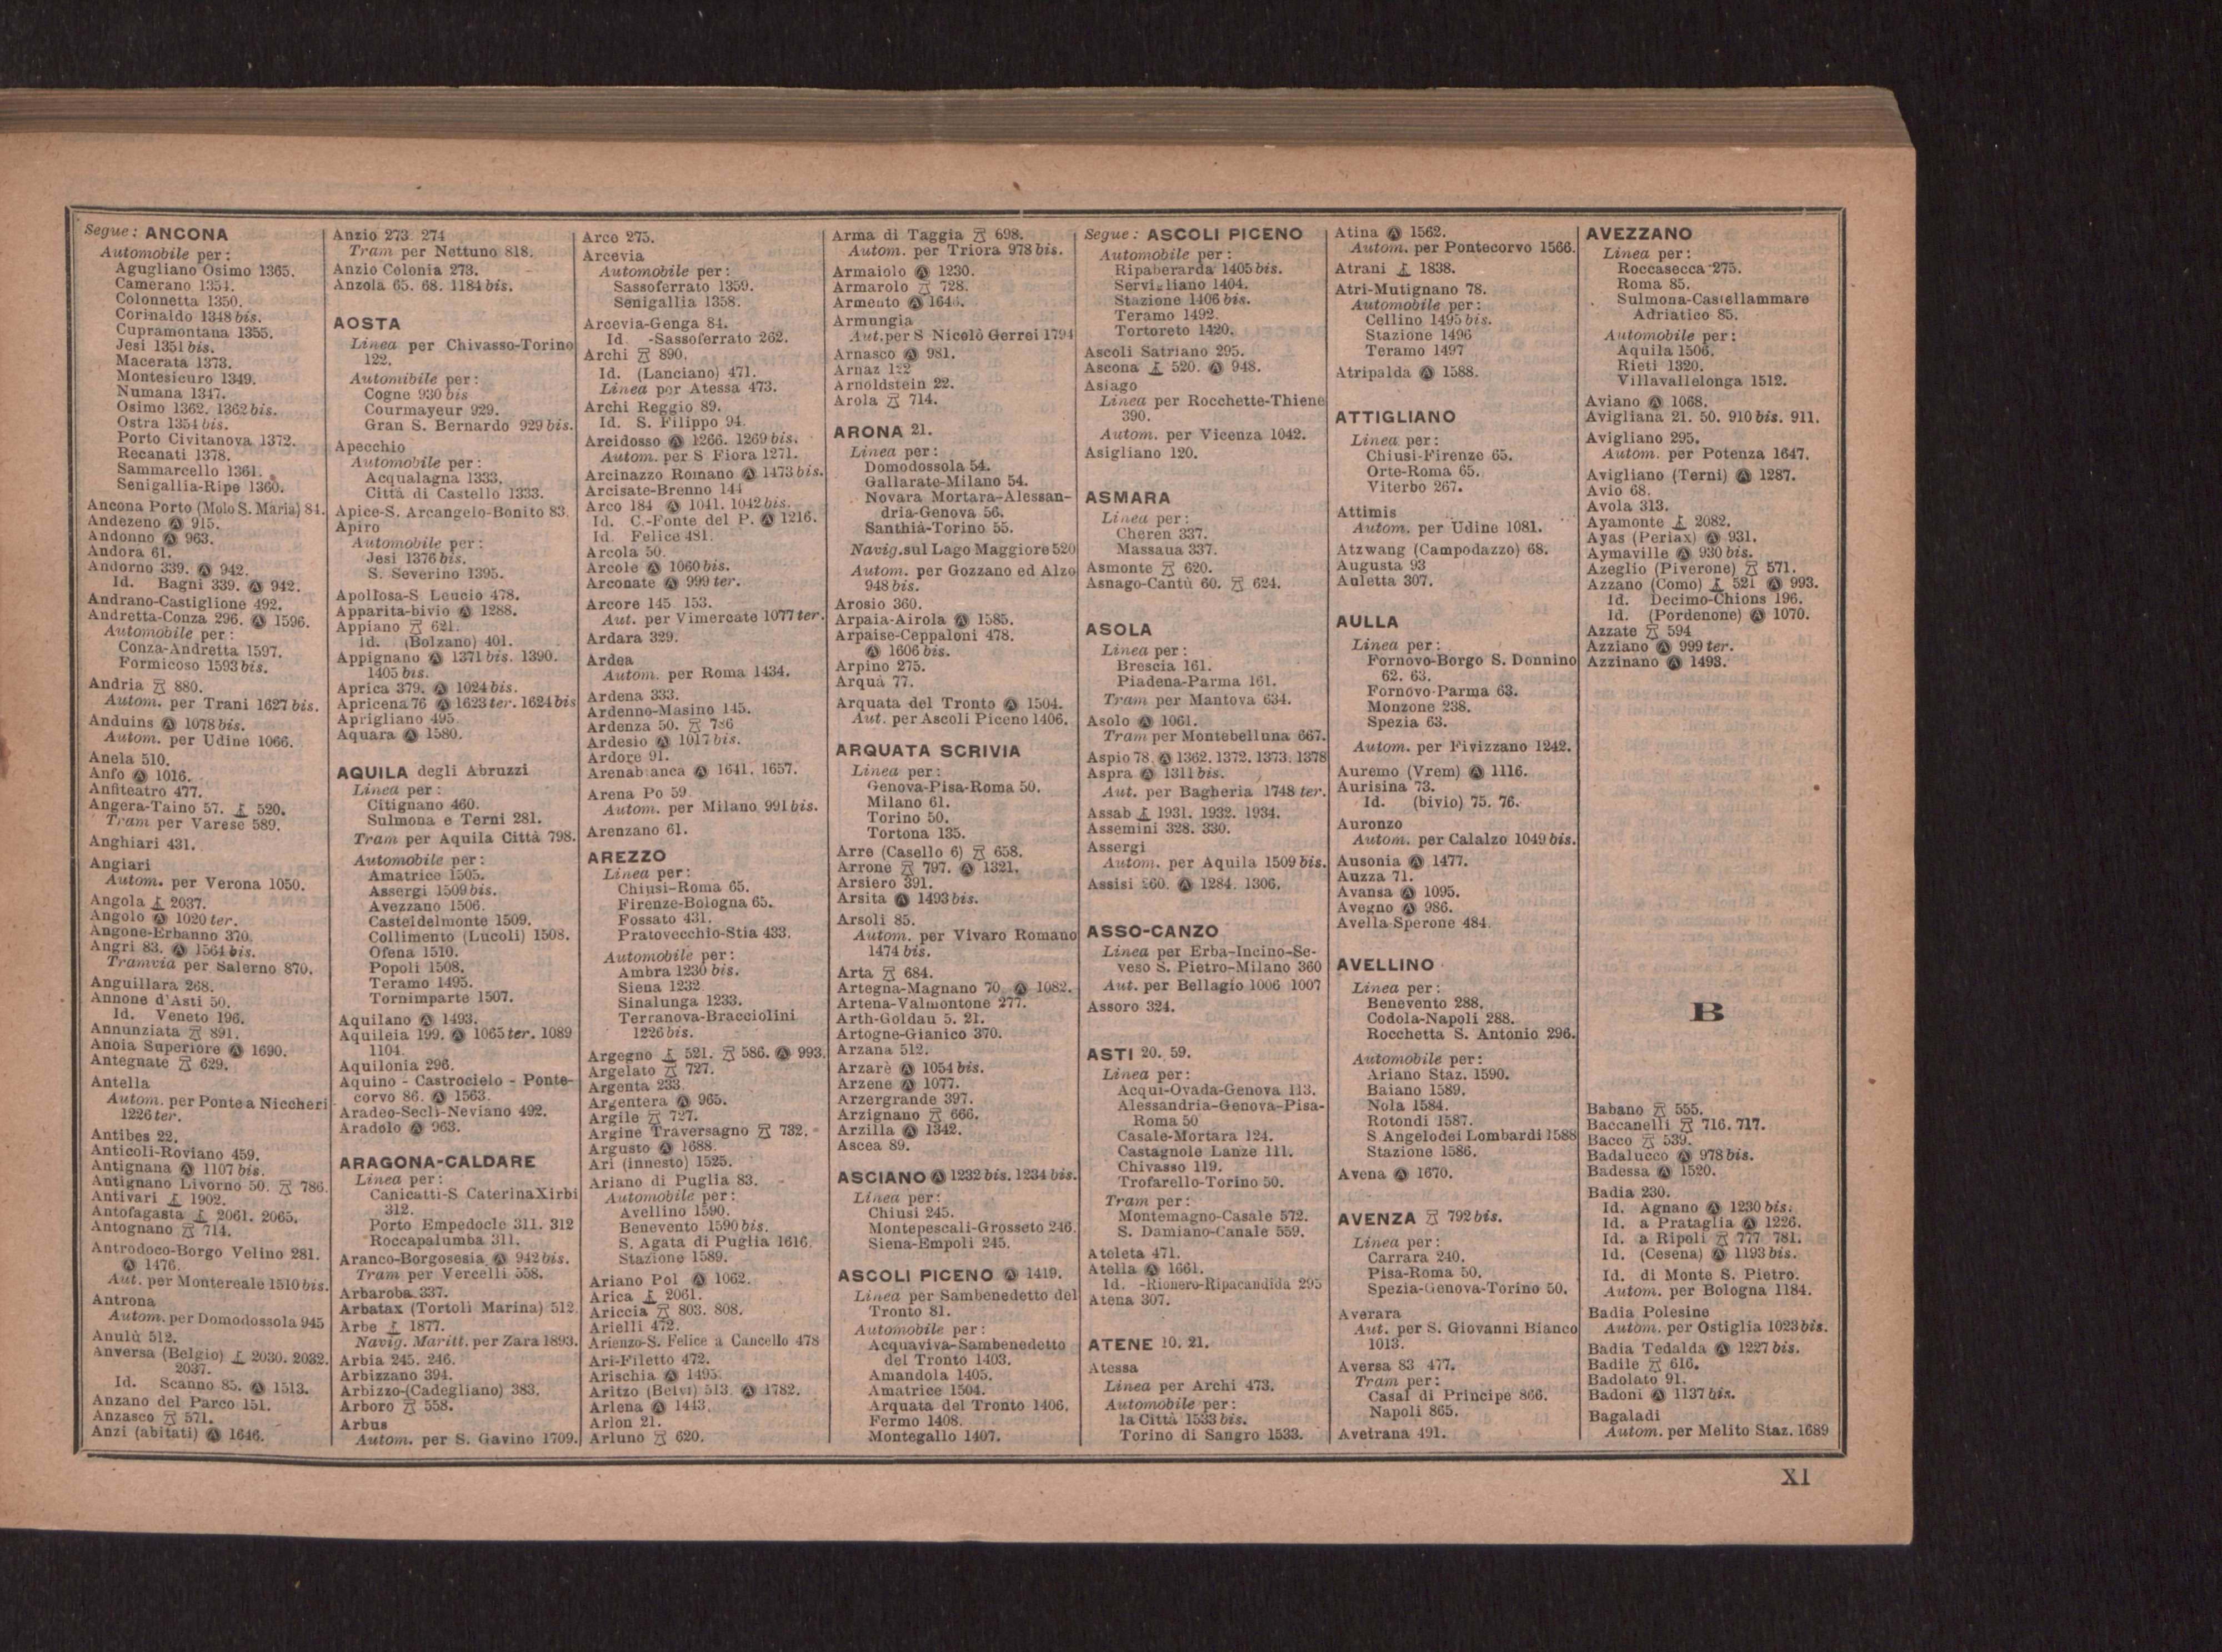 Segue: ANCONA
Automobile per:
Agugliano Osimo 1365.
Camerano 1354.
Colonnetta 1350.
Corinaldo 1348 bis.
Cupramontana 1355.
Jesi 1351 bis.
Macerata 1373.
Montesicuro 1349.
Numana 1347.
Osimo 1362. 1362 bis.
Ostra 1354 bis.
Porto Civitanova 1372.
Recanati 1378.
Sammarcello 1361.
Senigallia-Ripe 1360.
Ancona Porto (Molo S. Maria) 84.
Andezeno Ⓐ 915.
Andonno Ⓐ 963.
Andora 61.
Andorno 339. Ⓐ 942.
Id. Bagni 339. Ⓐ 942.
Andrano-Castiglione 492.
Andretta-Conza 296. Ⓐ 1596.
Automobile per:
Conza-Andretta 1597.
Formicoso 1593 bis.
Andria 880.
Autom. per Trani 1627 bis.
Anduins Ⓐ 1078 bis.
Autom. per Udine 1066.
Anela 510.
Anfo Ⓐ 1016.
Anfiteatro 477.
Angera-Taino 57. 520.
Tram per Varese 589.
Anghiari 431.
Angiari
Autom. per Verona 1050.
Angola 2037.
Angolo Ⓐ 1020 ter.
Angone-Erbanno 370.
Angri 83. Ⓐ 1564 bis.
Tramvia per Salerno 870.
Anguillara 268.
Annone d'Asti 50.
Id. Veneto 196.
Annunziata 891.
Anoia Superiore Ⓐ 1690.
Antegnate 629.
Antella
Autom. per Ponte a Niccheri
1226 ter.
Antibes 22.
Anticoli-Roviano 459.
Antignana Ⓐ 1107 bis.
Antignano Livorno 50. 786.
Antivari 1902.
Antofagasta 2061. 2065.
Antognano 714.
Antrodoco-Borgo Velino 281.
Ⓐ 1476.
Aut. per Montereale 1510 bis.
Antrona
Autom. per Domodossola 945
Anulù 512.
Anversa (Belgio) 2030. 2032.
2037.
Id. Scanno 85. Ⓐ 1513.
Anzano del Parco 151.
Anzasco 571.
Anzi (abitati) Ⓐ 1646.
Anzio 273. 274
Tram per Nettuno 818.
Anzio Colonia 273.
Anzola 65. 68. 1184 bis.
AOSTA
Linea per Chivasso-Torino
122.
Automibile per:
Cogne 930 bis
Courmayeur 929.
Gran S. Bernardo 929 bis.
Apecchio
Automobile per:
Acqualagna 1333.
Città di Castello 1333.
Apice-S. Arcangelo-Bonito 83.
Apiro
Automobile per:
Jesi 1376 bis.
S. Severino 1395.
Apollosa-S. Leucio 478.
Apparita-bivio Ⓐ 1288.
Appiano 621.
Id. (Bolzano) 401.
Appignano Ⓐ 1371 bis. 1390.
1405 bis.
Aprica 379. Ⓐ 1024 bis.
Apricena 76 Ⓐ 1623 ter. 1624 bis
Aprigliano 495.
Aquara Ⓐ 1580.
AQUILA degli Abruzzi
Linea per:
Citignano 460.
Sulmona e Terni 281.
Tram per Aquila Città 798.
Automobile per:
Amatrice 1505.
Assergi 1509 bis.
Avezzano 1506.
Casteldelmonte 1509.
Collimento (Lucoli) 1508.
Ofena 1510.
Popoli 1508.
Teramo 1495.
Tornimparte 1507.
Aquilano Ⓐ 1493.
Aquileia 199. Ⓐ 1065 ter. 1089
1104.
Aquilonia 296.
Aquino - Castrocielo - Ponte-
corvo 86. Ⓐ 1563.
Aradeo-Seclì-Neviano 492.
Aradolo Ⓐ 963.
ARAGONA-CALDARE
Linea per:
Canicatti-S. Caterina Xirbi
312.
Porto Empedocle 311. 312
Roccapalumba 311.
Aranco-Borgosesia. Ⓐ 942 bis.
Tram per Vercelli 558.
Arbaroba 337.
Arbatax (Tortolì Marina) 512.
Arbe 1877.
Navig. Maritt. per Zara 1893.
Arbia 245. 246.
Arbizzano 394.
Arbizzo-(Cadegliano) 383.
Arboro 558.
Arbus
Autom. per S. Gavino 1709.
Arce 275.
Arcevia
Automobile per:
Sassoferrato 1359.
Senigallia 1358.
Arcevia-Genga 84.
Id. -Sassoferrato 262.
Archi 890.
Id. (Lanciano) 471.
Linea per Atessa 473.
Archi Reggio 89.
Id. S. Filippo 94.
Arcidosso Ⓐ 1266. 1269 bis.
Autom. per S. Fiora 1271.
Arcinazzo Romano Ⓐ 1473 bis.
Arcisate-Brenno 144
Arco 184 Ⓐ 1041. 1042 bis.
Id. C.-Fonte del P. Ⓐ 1216.
Id. Felice 481.
Arcola 50.
Arcole Ⓐ 1060 bis.
Arconate Ⓐ 999 ter.
Arcore 145. 153.
Aut. per Vimercate 1077 ter.
Ardara 329.
Ardea
Autom. per Roma 1434.
Ardena 333.
Ardenno-Masino 145.
Ardenza 50. 786
Ardesio Ⓐ 1017 bis.
Ardore 91.
Arenabianca Ⓐ 1641. 1657.
Arena Po 59.
Autom. per Milano 991 bis.
Arenzano 61.
AREZZO
Linea per:
Chiusi-Roma 65.
Firenze-Bologna 65.
Fossato 431.
Pratovecchio-Stia 433.
Automobile per:
Ambra 1230 bis.
Siena 1232
Sinalunga 1233.
Terranova-Bracciolini
1226 bis.
Argegno 521. 586. Ⓐ 993.
Argelato 727.
Argenta 233.
Argentera Ⓐ 965.
Argile 727.
Argine Traversagno 732.
Argusto Ⓐ 1688.
Ari (innesto) 1525.
Ariano di Puglia 83.
Automobile per:
Avellino 1590.
Benevento 1590 bis.
S. Agata di Puglia 1616.
Stazione 1589.
Ariano Pol Ⓐ 1062.
Arica 2061.
Ariccia 803. 808.
Arielli 472.
Arienzo-S. Felice a Cancello 478
Ari-Filetto 472.
Arischia Ⓐ 1495.
Aritzo (Belvì) 513. Ⓐ 1782.
Arlena Ⓐ 1443.
Arlon 21.
Arluno 620.
Arma di Taggia 698.
Autom. per Triora 978 bis.
Armaiolo Ⓐ 1230.
Armarolo 728.
Armento Ⓐ 1646.
Armungia
Aut. per S. Nicolò Gerrei 1794
Arnasco Ⓐ 981.
Arnaz 122
Arnoldstein 22.
Arola 714.
ARONA 21.
Linea per:
Domodossola 54.
Gallarate-Milano 54.
Novara Mortara-Alessan-
dria-Genova 56.
Santhià-Torino 55.
Navig. sul Lago Maggiore 520
Autom. per Gozzano ed Alzo
948 bis.
Arosio 360.
Arpaia-Airola Ⓐ 1585.
Arpaise-Ceppaloni 478.
Ⓐ 1606 bis.
Arpino 275.
Arquà 77.
Arquata del Tronto Ⓐ 1504.
Aut. per Ascoli Piceno 1406.
ARQUATA SCRIVIA
Linea per:
Genova-Pisa-Roma 50.
Milano 61.
Torino 50.
Tortona 135.
Arre (Casello 6) 658.
Arrone 797. Ⓐ 1321.
Arsiero 391.
Arsita Ⓐ 1493 bis.
Arsoli 85.
Autom. per Vivaro Romano
1474 bis.
Arta 684.
Artegna-Magnano 70. Ⓐ 1082.
Artena-Valmontone 277.
Arth-Goldau 5. 21.
Artogne-Gianico 370.
Arzana 512.
Arzarè Ⓐ 1054 bis.
Arzene Ⓐ 1077.
Arzergrande 397.
Arzignano 666.
Arzilla Ⓐ 1342.
Ascea 89.
ASCIANO Ⓐ 1232 bis. 1234 bis.
Linea per:
Chiusi 245.
Montepescali-Grosseto 246.
Siena-Empoli 245.
ASCOLI PICENO Ⓐ 1419.
Linea per Sambenedetto del
Tronto 81.
Automobile per:
Acquaviva-Sambenedetto
del Tronto 1403.
Amandola 1405.
Amatrice 1504.
Arquata del Tronto 1406.
Fermo 1408.
Montegallo 1407.
Segue: ASCOLI PICENO
Automobile per:
Ripaberarda 1405 bis.
Servigliano 1404.
Stazione 1406 bis.
Teramo 1492.
Tortoreto 1420.
Ascoli Satriano 295.
Ascona 520. Ⓐ 948.
Asiago
Linea per Rocchette-Thiene
390.
Autom. per Vicenza 1042.
Asigliano 120.
ASMARA
Linea per:
Cheren 337.
Massaua 337.
Asmonte 620.
Asnago-Cantù 60. 624.
ASOLA
Linea per:
Brescia 161.
Piadena-Parma 161.
Tram per Mantova 634.
Asolo Ⓐ 1061.
Tram per Montebelluna 667.
Aspio 78. Ⓐ 1362. 1372. 1373. 1378
Aspra Ⓐ 1311 bis.
Aut. per Bagheria 1748 ter.
Assab 1931. 1932. 1934.
Assemini 328. 330.
Assergi
Autom. per Aquila 1509 bis.
Assisi 260. Ⓐ 1284. 1306.
ASSO-CANZO
Linea per Erba-Incino-Se-
veso S. Pietro-Milano 360
Aut. per Bellagio 1006 1007
Assoro 324.
ASTI 20. 59.
Linea per:
Acqui-Ovada-Genova 113.
Alessandria-Genova-Pisa-
Roma 50
Casale-Mortara 124.
Castagnole Lanze 111.
Chivasso 119.
Trofarello-Torino 50.
Tram per:
Montemagno-Casale 572.
S. Damiano-Canale 559.
Ateleta 471.
Atella Ⓐ 1661.
Id. -Rionero-Ripacandida 295
Atena 307.
ATENE 10. 21.
Atessa
Linea per Archi 473.
Automobile per:
la Città 1533 bis.
Torino di Sangro 1533.
Atina Ⓐ 1562.
Autom. per Pontecorvo 1566.
Atrani 1838.
Atri-Mutignano 78.
Automobile per:
Cellino 1495 bis.
Stazione 1496
Teramo 1497
Atripalda Ⓐ 1588.
ATTIGLIANO
Linea per:
Chiusi-Firenze 65.
Orte-Roma 65.
Viterbo 267.
Attimis
Autom. per Udine 1081.
Atzwang (Campodazzo) 68.
Augusta 93
Auletta 307.
AULLA
Linea per:
Fornovo-Borgo S. Donnino
62. 63.
Fornovo-Parma 63.
Monzone 238.
Spezia 63.
Autom. per Fivizzano 1242.
Auremo (Vrem) Ⓐ 1116.
Aurisina 73.
Id. (bivio) 75. 76.
Auronzo
Autom. per Calalzo 1049 bis.
Ausonia Ⓐ 1477.
Auzza 71.
Avansa Ⓐ 1095.
Avegno Ⓐ 986.
Avella-Sperone 484.
AVELLINO
Linea per:
Benevento 288.
Codola-Napoli 288.
Rocchetta S. Antonio 296.
Automobile per:
Ariano Staz. 1590.
Baiano 1589.
Nola 1584.
Rotondi 1587.
S. Angelo dei Lombardi 1588
Stazione 1586.
Avena Ⓐ 1670.
AVENZA 792 bis.
Linea per:
Carrara 240.
Pisa-Roma 50.
Spezia-Genova-Torino 50.
Averara
Aut. per S. Giovanni Bianco
1013.
Aversa 83 477.
Tram per:
Casal di Principe 866.
Napoli 865.
Avetrana 491.
AVEZZANO
Linea per:
Roccasecca 275.
Roma 85.
Sulmona-Castellammare
Adriatico 85.
Automobile per:
Aquila 1506.
Rieti 1320.
Villavallelonga 1512.
Aviano Ⓐ 1068.
Avigliana 21. 50. 910 bis. 911.
Avigliano 295.
Autom. per Potenza 1647.
Avigliano (Terni) Ⓐ 1287.
Avio 68.
Avola 313.
Ayamonte 2082.
Ayas (Periax) Ⓐ 931.
Aymaville Ⓐ 930 bis.
Azeglio (Piverone) 571.
Azzano (Como) 521 Ⓐ 993.
Id. Decimo-Chions 196.
Id. (Pordenone) Ⓐ 1070.
Azzate 594
Azziano Ⓐ 999 ter.
Azzinano Ⓐ 1493.
B
Babano 555.
Baccanelli 716. 717.
Bacco 539.
Badalucco Ⓐ 978 bis.
Badessa Ⓐ 1520.
Badia 230.
Id. Agnano Ⓐ 1230 bis.
Id. a Prataglia Ⓐ 1226.
Id. a Ripoli 777 781.
Id. (Cesena) Ⓐ 1193 bis.
Id. di Monte S. Pietro.
Autom. per Bologna 1184.
Badia Polesine
Autom. per Ostiglia 1023 bis.
Badia Tedalda Ⓐ 1227 bis.
Badile 616.
Badolato 91.
Badoni Ⓐ 1137 bis.
Bagaladi
Autom. per Melito Staz. 1689
XI